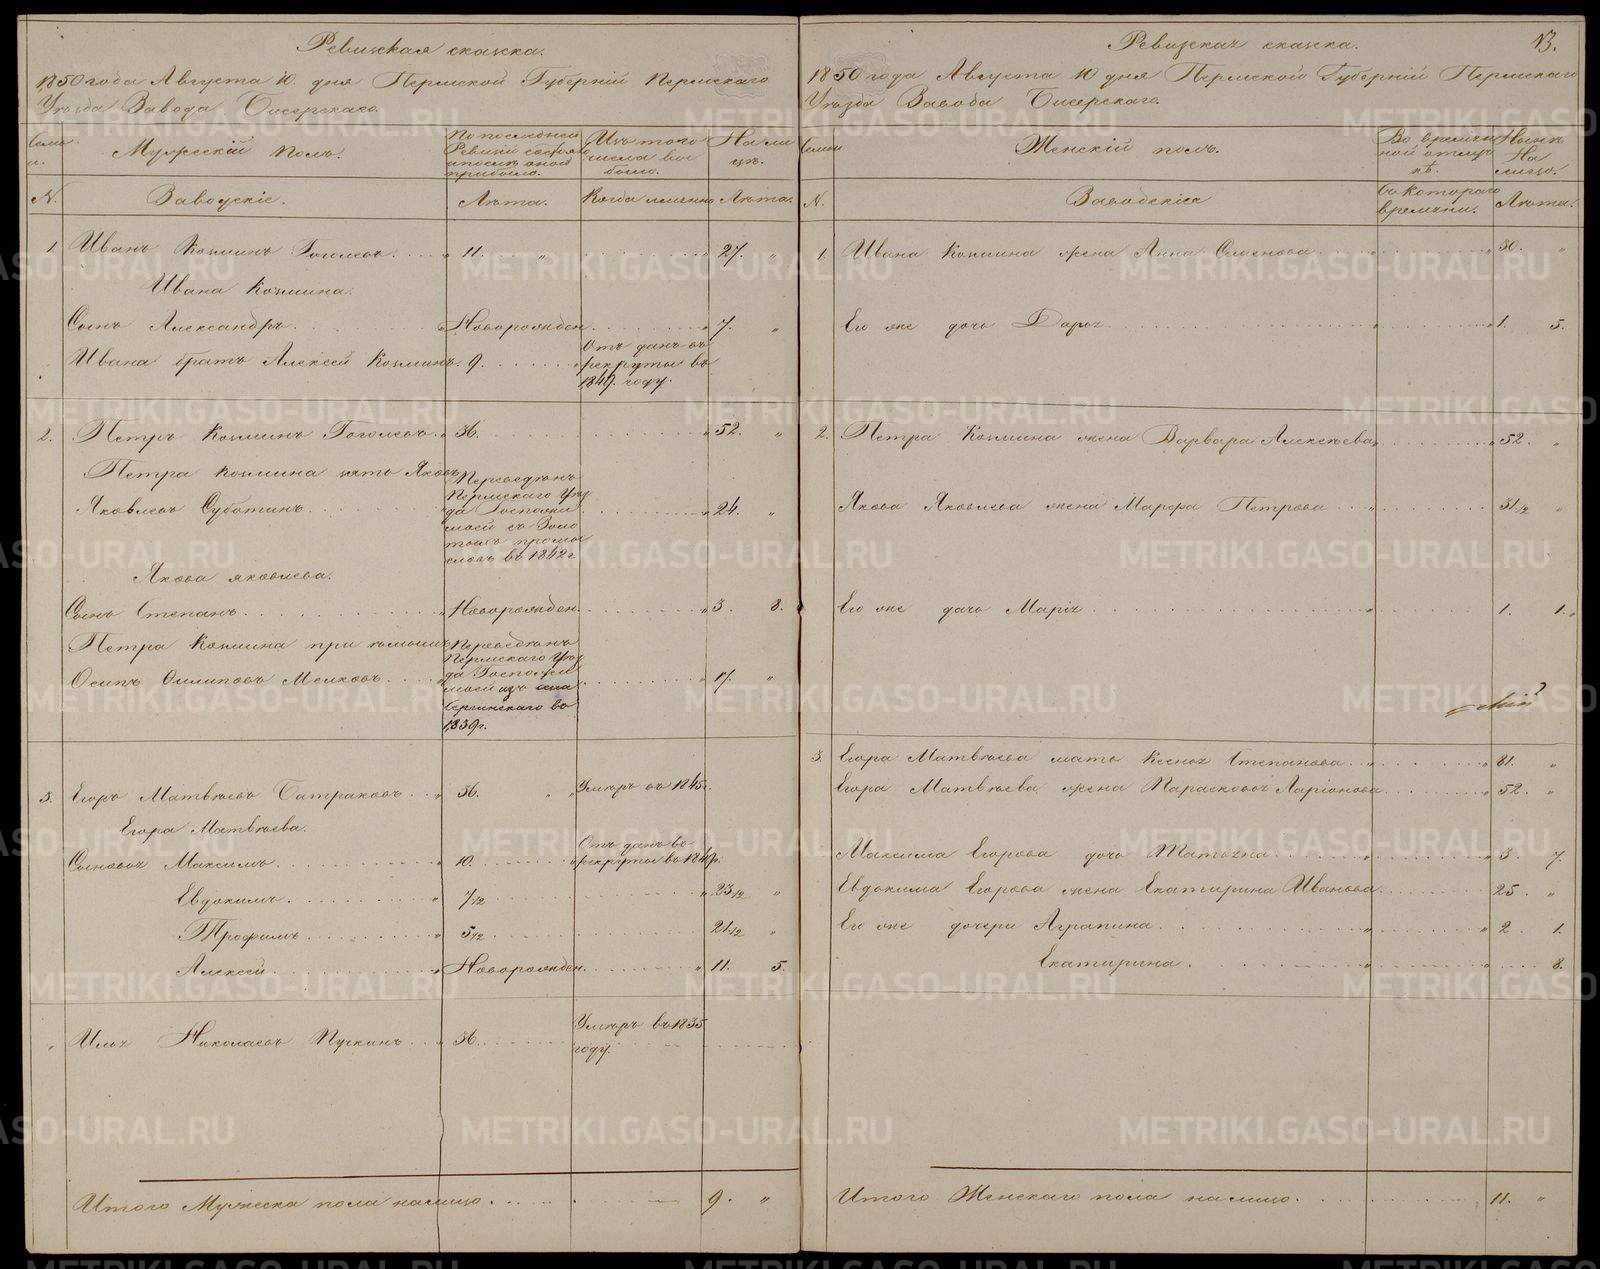 Ревизская сказка.
1850 года Августа 10. дня Пермской Губерніи Пермскаго
Уѣзда Завода Бисерскаго.
Семьи
Мужескій полъ.
По последней Ревизіи состояло и после оной прибыло.
Изъ того числа выбыло.
На лицѣ.
N.
Заводскіе.
Лѣта.
Когда именно
Лѣта.
1. Иванъ Козминъ Гоголевъ. 11. 27. "
Ивана Козмина.
Сынъ Александръ. Новорожден. 7. "
Ивана братъ Алексей Козминъ. 9. Отъ данъ въ рекруты въ 1849. году.
2. Петръ Козминъ Гоголевъ. 36. 52. "
Петра Козмина зять Яковъ
Яковлевъ Суботинъ. Переведенъ Пермскаго Уезда Госпожи моей съ Золотыхъ промысловъ въ 1842 г. 24. "
Якова яковлева.
Сынъ Степанъ. Новорожден. 3. 8.
Петра Козмина при емышъ
Осипъ Филиповъ Мелковъ. Переведенъ Пермскаго Уезда Госпожи моей изъ села Сергинскаго въ 1839 г. 17. "
3. Егоръ Матвѣевъ Батраковъ. 36. " Умеръ въ 1845 г.
Егора Матвѣева.
Сыновья Максимъ. 10. Отъ данъ въ рекруты въ 1849 г.
Евдокимъ. 7 1/2 23 1/2 "
Трофимъ. 5 1/2 21 1/2 "
Алексей. Новорожден. 11. 5.
Илья Николаевъ Пучкинъ. 36. Умеръ въ 1835 году.
Итого Мужеска пола налицо. 9. "
Ревизская сказка. 13.
1850 года Августа 10 дня Пермской Губерніи Пермскаго
Уѣзда Завода Бисерскаго.
Семьи
Женскій полъ.
Во временной отлучкѣ.
Ныне На лицо.
N.
Заводскія
Съ котораго времени.
Лѣта.
1. Ивана Козмина жена Анна Семенова 30. "
Его же дочь Дарья 1. 5.
2. Петра Козмина жена Варвара Алексѣева 52. "
Якова Яковлева жена Марфа Петрова 31 1/2 "
Его же дочь Марія 1. 1.
3. Егора Матвѣева мать Ксенья Степанова 81. "
Егора Матвѣева жена Парасковья Ларіонова 52. "
Максима Егорова дочь Татьяна 3. 7.
Евдокима Егорова жена Екатирина Иванова. 25. "
Его же дочери Аграпина. 2. 1.
Екатирина. 8.
Итого Женскаго пола налицо. 11. "
METRIKI.GASO-URAL.RU